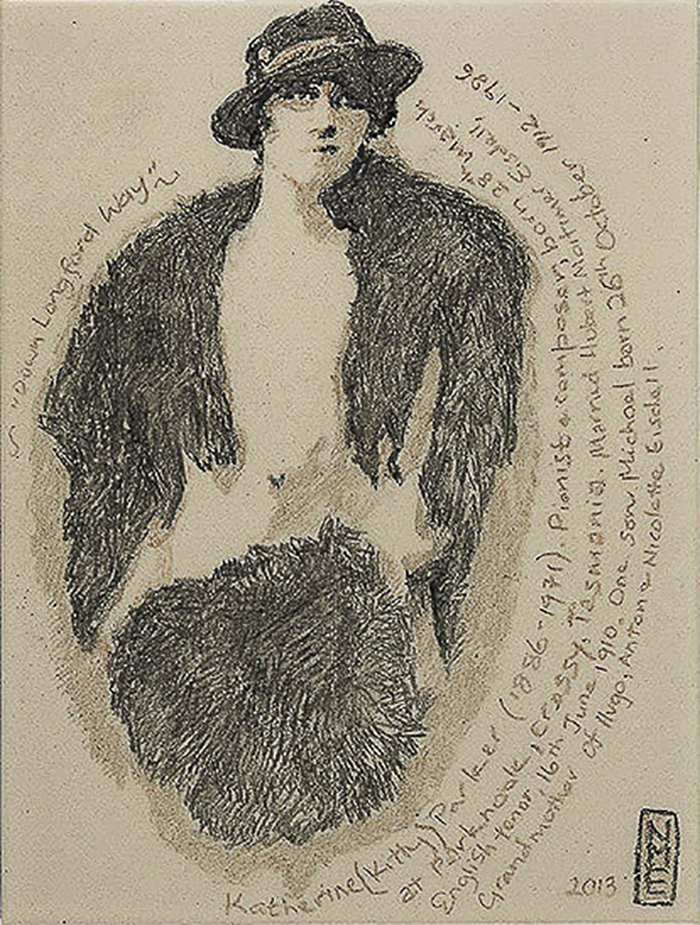 "Down Longford Way"
Katherine (Kitty) Parker (1886-1971). Pianist & composer, born 28th March
at Cressy, Tasmania. Married Hubert Mortimer Eisdell,
English tenor, 16th June 1910. One son Michael born 26th October 1912 - 1986
Grandmother of Hugo, Antonia Nicolette Eisdell.
2013